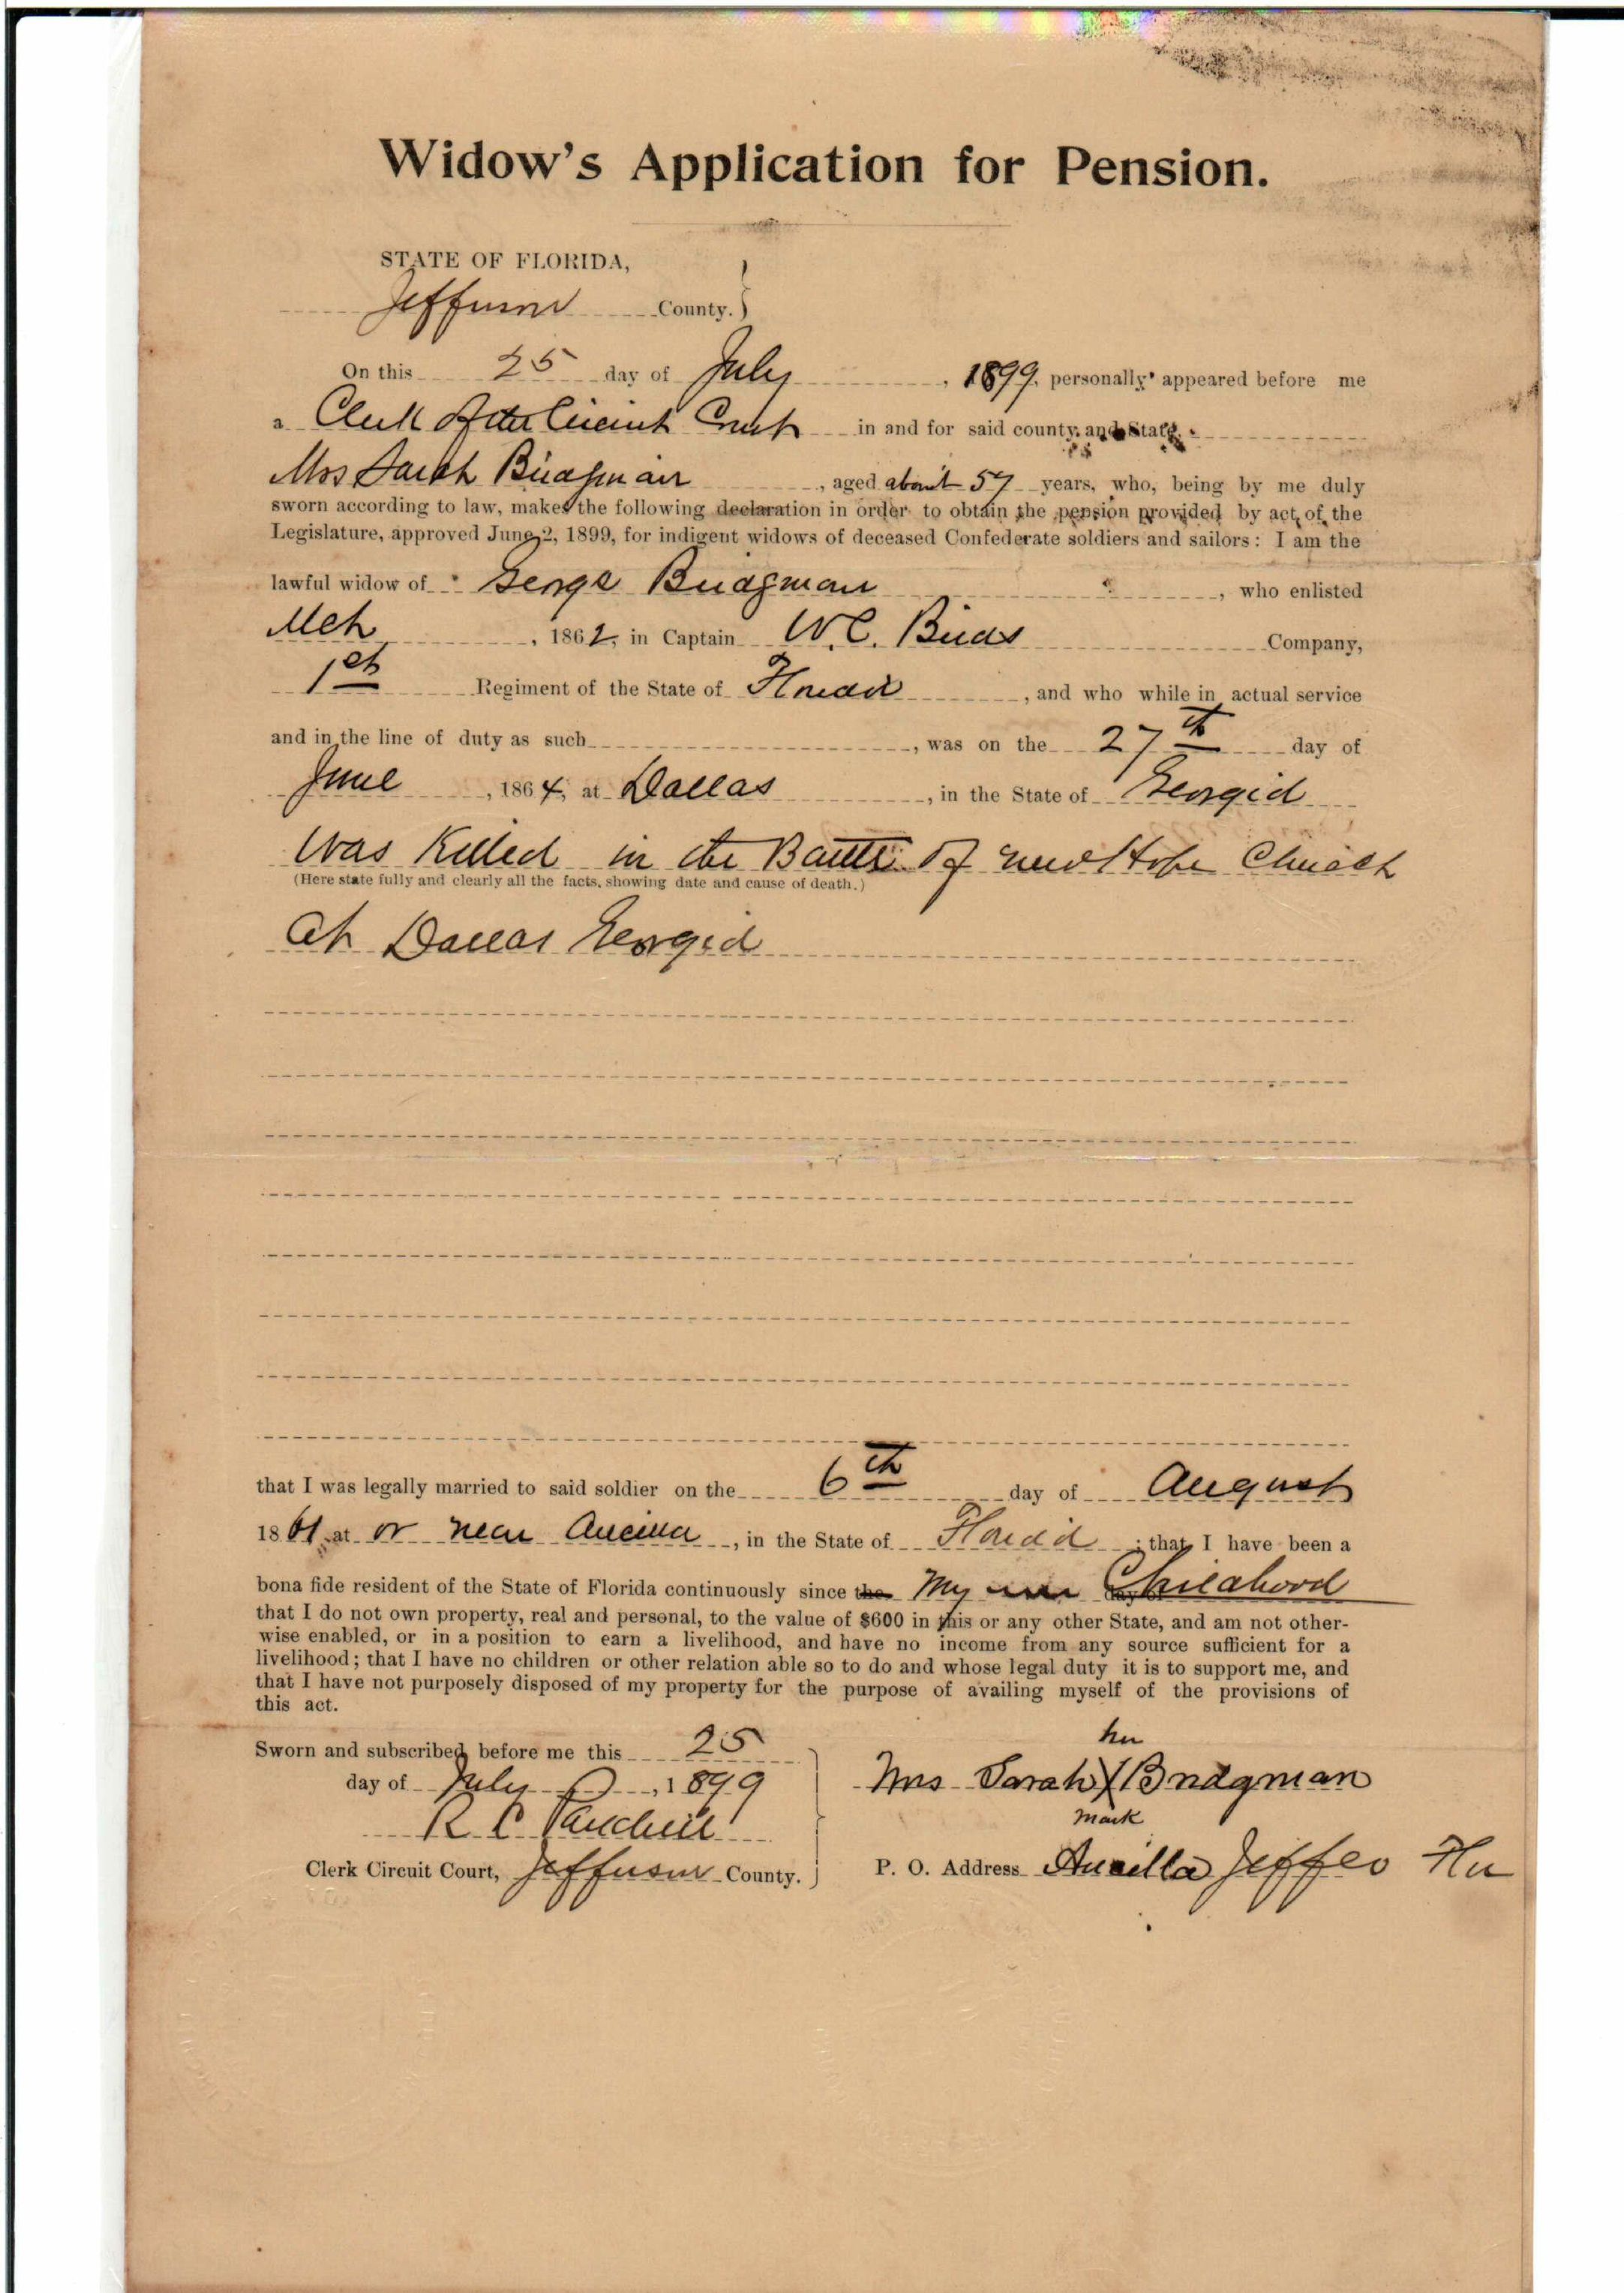 Widow's Application for Pension.
STATE OF FLORIDA,
Jefferson County.
On this 25 day of July, 1899, personally appeared before me
a Clerk of the Circuit Court in and for said county and State.
Mrs Sarah Bridgman, aged about 57 years, who, being by me duly
sworn according to law, makes the following declaration in order to obtain the pension provided by act of the
Legislature, approved June 2, 1899, for indigent widows of deceased Confederate soldiers and sailors: I am the
lawful widow of George Bridgman, who enlisted
Mch, 1862, in Captain W. C. Birds Company,
1st Regiment of the State of Florida, and who while in actual service
and in the line of duty as such, was on the 27th day of
June, 1864, at Dallas, in the State of Georgia
Was Killed in the Battle of new Hope Church
(Here state fully and clearly all the facts, showing date and cause of death.)
At Dallas Georgia
that I was legally married to said soldier on the 6th day of August
1861 at or near Aucilla, in the State of Florida; that I have been a
bona fide resident of the State of Florida continuously since the My Childhood
that I do not own property, real and personal, to the value of $600 in this or any other State, and am not other-
wise enabled, or in a position to earn a livelihood, and have no income from any source sufficient for a
livelihood; that I have no children or other relation able so to do and whose legal duty it is to support me, and
that I have not purposely disposed of my property for the purpose of availing myself of the provisions of
this act.
Sworn and subscribed before me this 25
day of July, 1899
R C
Clerk Circuit Court, Jefferson County.
her
Mrs Sarah X Bridgman
mark
P. O. Address Aucilla Jeffer Fla